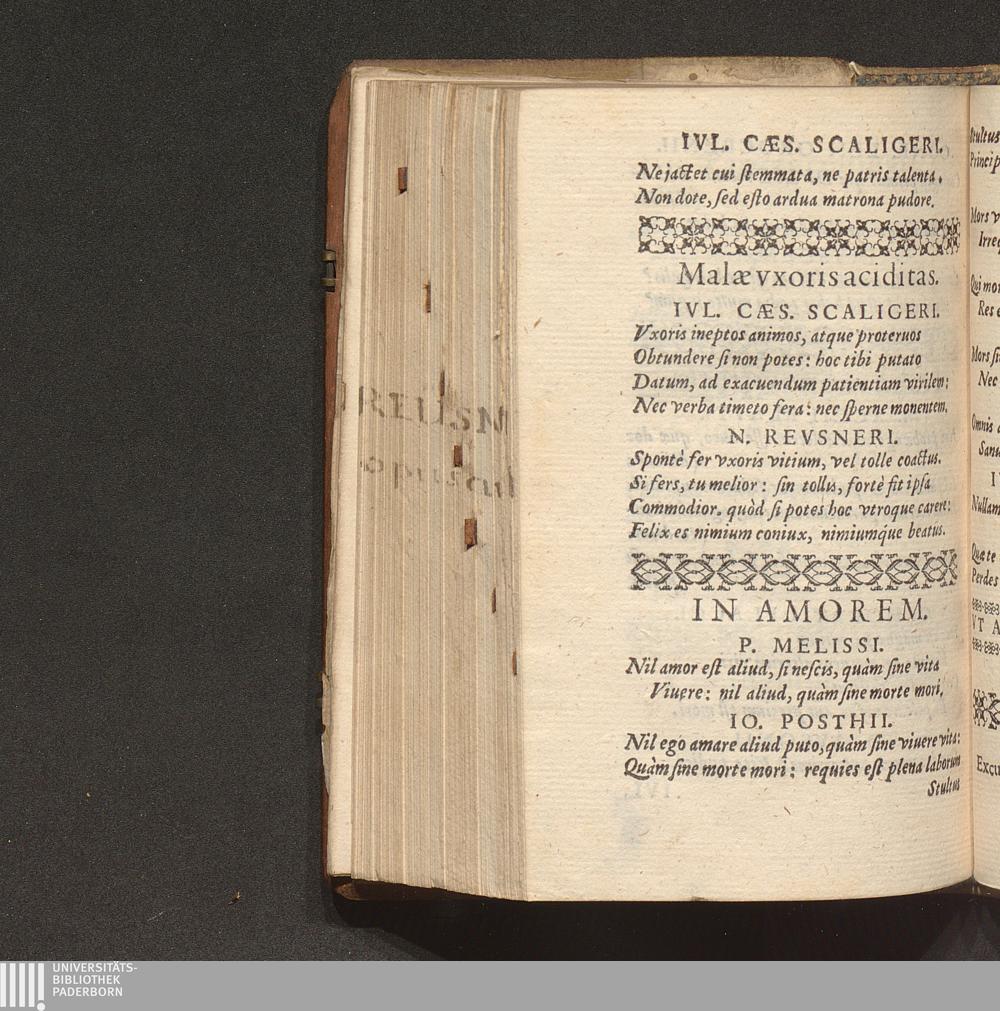 IVL. CÆS. SCALIGERI.
Ne jactet cui stemmata, ne patris talenta.
Non dote, sed esto ardua matrona pudore.
Malæ vxoris aciditas.
IVL. CÆS. SCALIGERI.
Vxoris ineptos animos, atque proteruos
Obtundere si non potes: hoc tibi putato
Datum, ad exacuendum patientiam virilem:
Nec verba timeto fera: nec sperne monentem.
N. REVSNERI.
Spontè fer vxoris vitium, vel tolle coactus.
Si fers, tu melior: sin tollis, fortè fit ipsa
Commodior. quòd si potes hoc vtroque carere:
Felix es nimium coniux, nimiumq́ue beatus.
IN AMOREM.
P. MELISSI.
Nil amor est aliud, si nescis, quàm sine vita
Viuere: nil aliud, quàm sine morte mori.
IO. POSTHII.
Nil ego amare aliud puto, quàm sine viuere vita:
Quàm sine morte mori: requies est plena laborum
Stultus
REUSN
opuscul
Stultus
Princip
Mors v
Irre
Qui mor
Res
Mors si
Nec
Omnis
Nullam
Perdes
Excu
UNIVERSITÄTS-
BIBLIOTHEK
PADERBORN